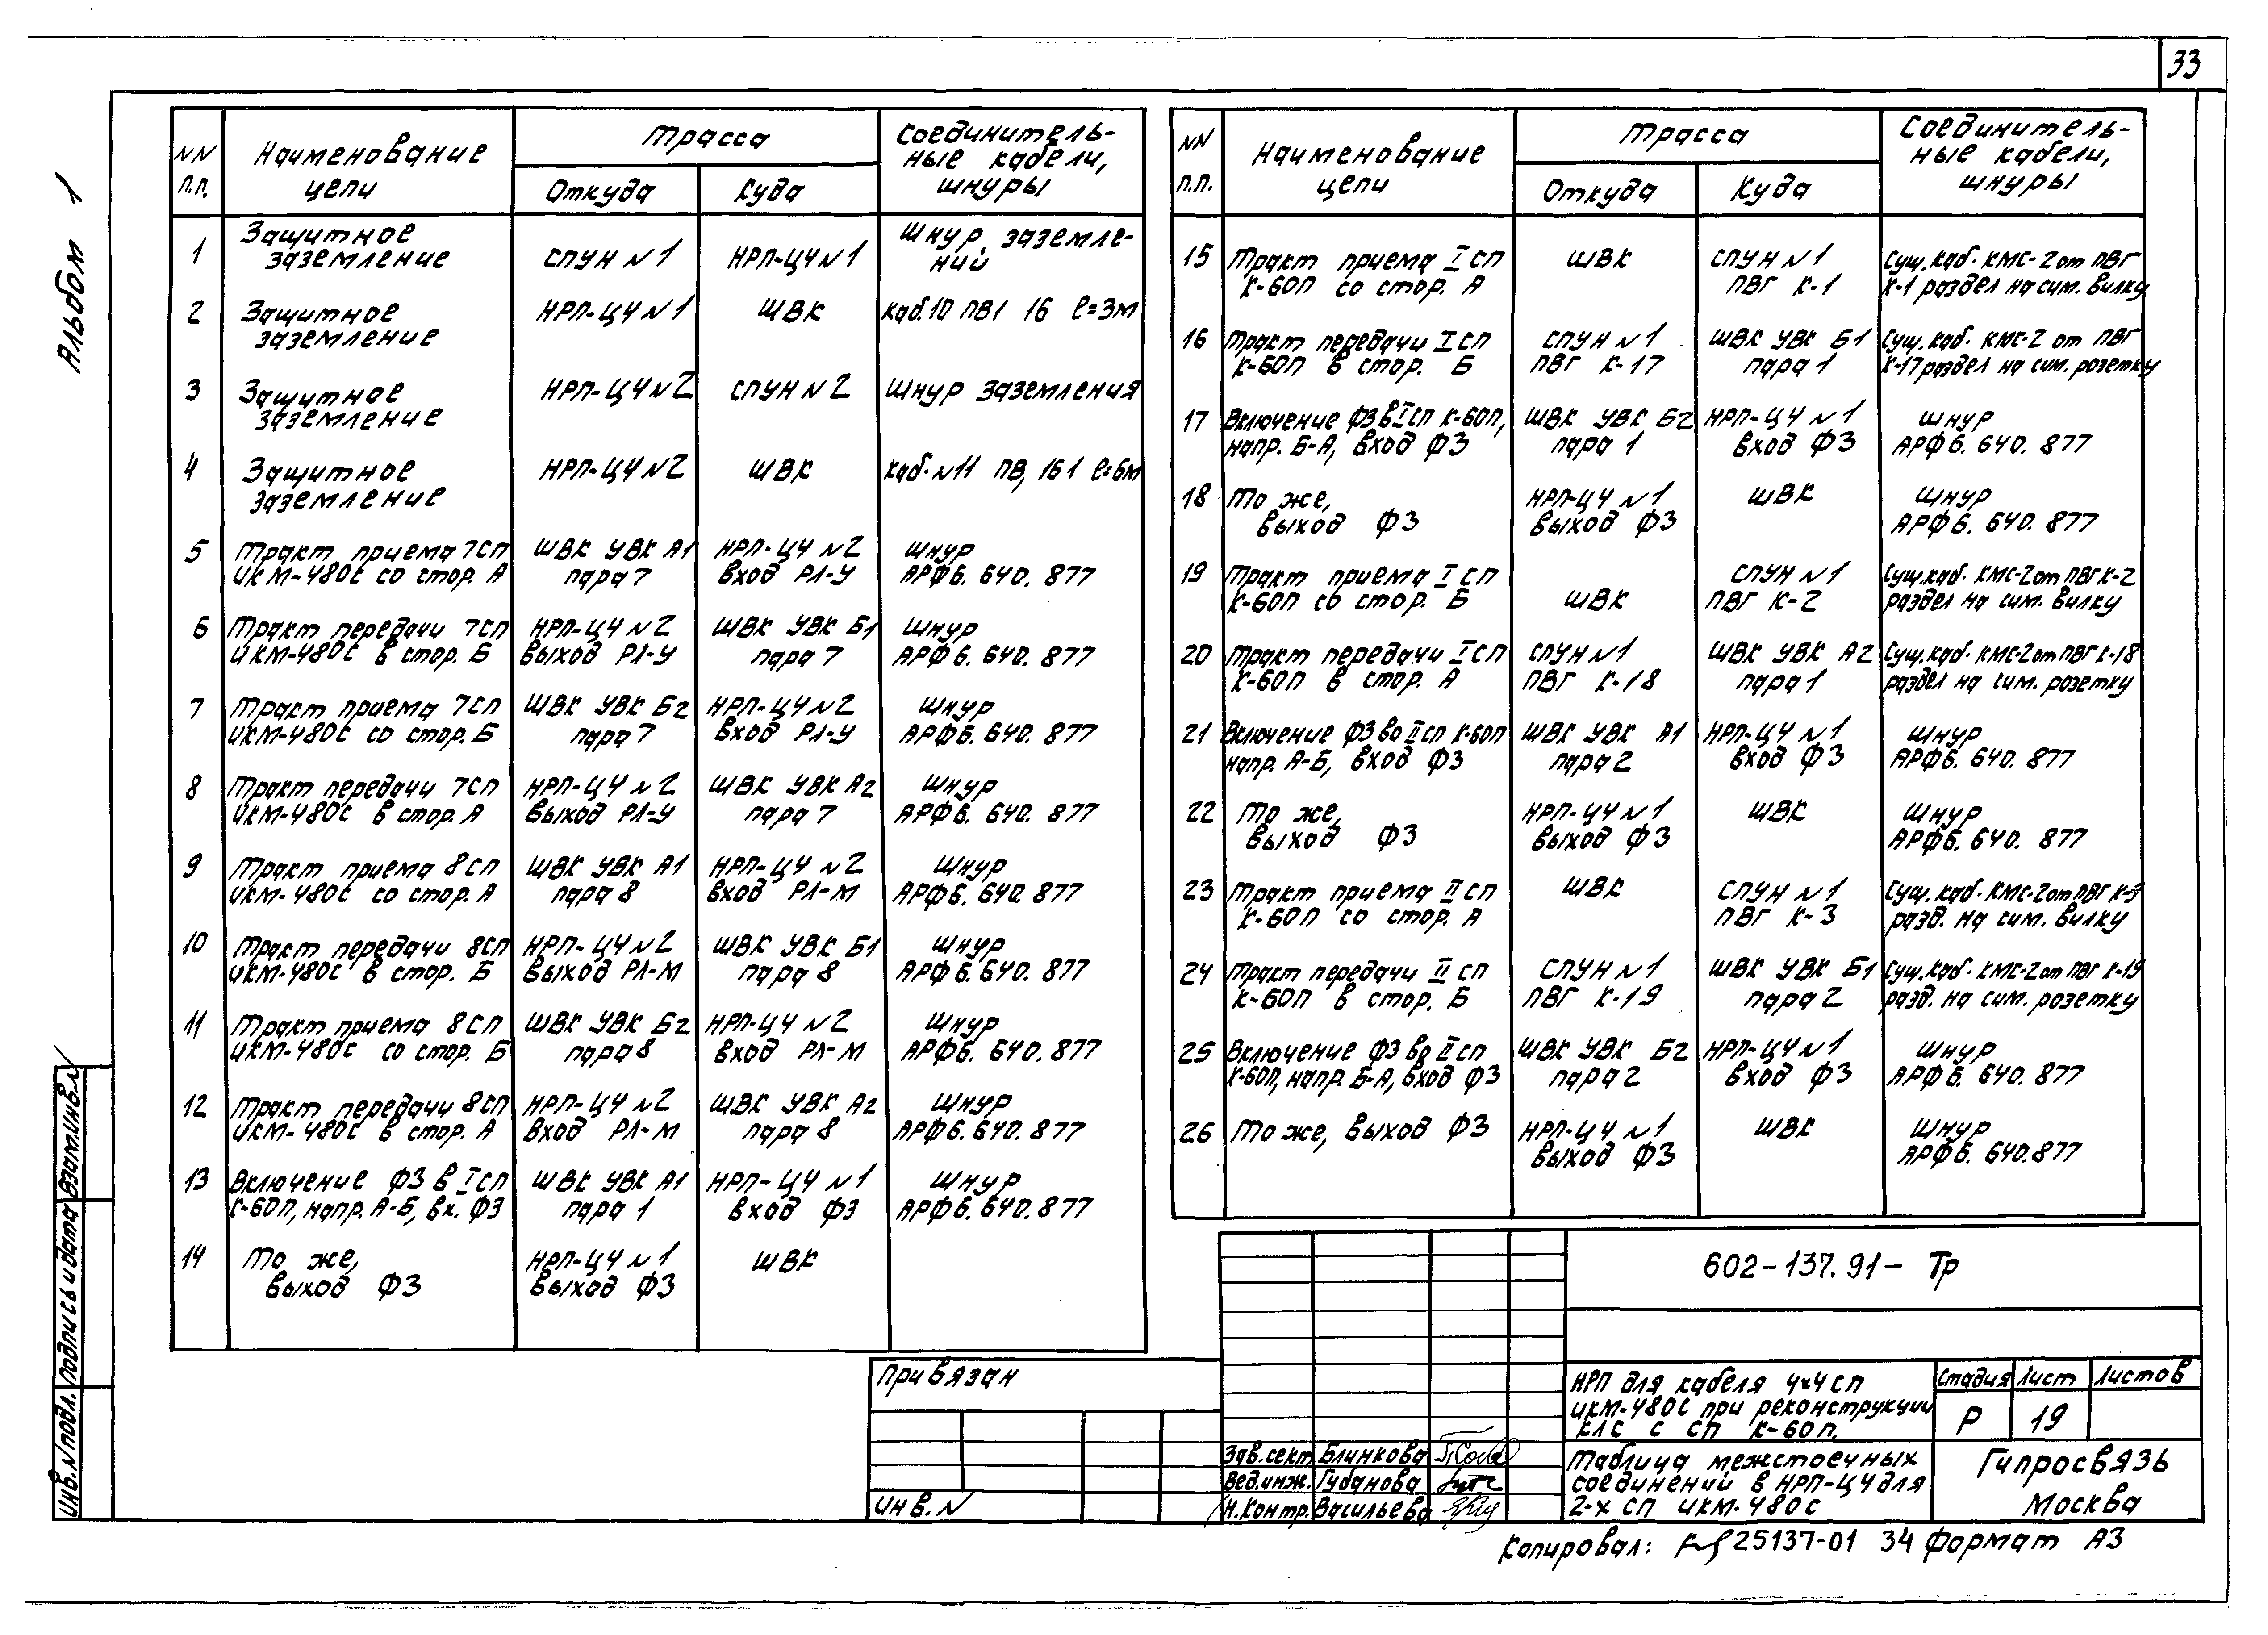 33
Альбом 1
NN п.п. Наименование цепи Трасса Соединитель-
ные кабели, шнуры
Откуда Куда
1 Защитное заземление СПУН N1 НРП-Ц4 N1 Шнур заземле-
ний
2 Защитное заземление НРП-Ц4 N1 ШВК Каб.10 ПВ1 16 ℓ=3м
3 Защитное заземление НРП-Ц4 N2 СПУН N2 Шнур заземления
4 Защитное заземление НРП-Ц4 N2 ШВК Каб. N11 ПВ, 16 1 ℓ=6м
5 Тракт приема 7СП ШВК УВК А1 НРП-Ц4 N2 Шнур
ИКМ-480С со стор. А пара 7 вход РЛ-У АРФ6.640.877
6 Тракт передачи 7СП НРП-Ц4 N2 ШВК УВК Б1 Шнур
ИКМ-480С в стор. Б выход РЛ-У пара 7 АРФ6.640.877
7 Тракт приема 7СП ШВК УВК Б2 НРП-Ц4 N2 Шнур
ИКМ-480С со стор. Б пара 7 вход РЛ-У АРФ6.640.877
8 Тракт передачи 7СП НРП-Ц4 N2 ШВК УВК А2 Шнур
ИКМ-480С в стор. А выход РЛ-У пара 7 АРФ6.640.877
9 Тракт приема 8СП ШВК УВК А1 НРП-Ц4 N2 Шнур
ИКМ-480С со стор. А пара 8 вход РЛ-М АРФ6.640.877
10 Тракт передачи 8СП НРП-Ц4 N2 ШВК УВК Б1 Шнур
ИКМ-480С в стор. Б выход РЛ-М пара 8 АРФ6.640.877
11 Тракт приема 8СП ШВК УВК Б2 НРП-Ц4 N2 Шнур
ИКМ-480С со стор. Б пара 8 вход РЛ-М АРФ6.640.877
12 Тракт передачи 8СП НРП-Ц4 N2 ШВК УВК А2 Шнур
ИКМ-480С в стор. А вход РЛ-М пара 8 АРФ6.640.877
13 Включение ФЗ в I СП ШВК УВК А1 НРП-Ц4 N1 Шнур
К-60П, напр. А-Б, вх. ФЗ пара 1 вход ФЗ АРФ6.640.877
14 То же, НРП-Ц4 N1 ШВК
выход ФЗ выход ФЗ
NN п.п. Наименование цепи Трасса Соединитель-
ные кабели, шнуры
Откуда Куда
15 Тракт приема I СП ШВК СПУН N1 Сущ. каб. КМС-2 от ПВГ
К-60П со стор. А ПВГ К-1 К-1 раздел на сим. вилку
16 Тракт передачи I СП СПУН N1 ШВК УВК Б1 Сущ. каб. КМС-2 от ПВГ
К-60П в стор. Б ПВГ К-17 пара 1 К-17 раздел на сим. розетку
17 Включение ФЗ в I СП К-60П, ШВК УВК Б2 НРП-Ц4 N1 Шнур
напр. Б-А, вход ФЗ пара 1 вход ФЗ АРФ6.640.877
18 То же, НРП-Ц4 N1 ШВК Шнур
выход ФЗ выход ФЗ АРФ6.640.877
19 Тракт приема I СП СПУН N1 Сущ. каб. КМС-2 от ПВГ К-2
К-60П со стор. Б ШВК ПВГ К-2 раздел на сим. вилку
20 Тракт передачи I СП СПУН N1 ШВК УВК А2 Сущ. каб. КМС-2 от ПВГ К-18
К-60П в стор. А ПВГ К-18 пара 1 раздел на сим. розетку
21 Включение ФЗ во II СП К-60П ШВК УВК А1 НРП-Ц4 N1 Шнур
напр. А-Б, вход ФЗ пара 2 вход ФЗ АРФ6.640.877
22 То же, НРП-Ц4 N1 ШВК Шнур
выход ФЗ выход ФЗ АРФ6.640.877
23 Тракт приема II СП ШВК СПУН N1 Сущ. каб. КМС-2 от ПВГ К-3
К-60П со стор. А ПВГ К-3 разд. на сим. вилку
24 Тракт передачи II СП СПУН N1 ШВК УВК Б1 Сущ. каб. КМС-2 от ПВГ К-19
К-60П в стор. Б ПВГ К-19 пара 2 разд. на сим. розетку
25 Включение ФЗ во II СП ШВК УВК Б2 НРП-Ц4 N1 Шнур
К-60П, напр. Б-А, вход ФЗ пара 2 вход ФЗ АРФ6.640.877
26 То же, выход ФЗ НРП-Ц4 N1 ШВК Шнур
выход ФЗ АРФ6.640.877
602-137.91- Тр
Привязан
Инв. N
НРП для кабеля 4х4 СП
ИКМ-480С при реконструкции
КЛС с СП К-60П.
Стадия Лист Листов
Р 19
Зав. сект. Блинкова
Вед. инж. Губанова
Н. контр. Васильева
Таблица межстоечных
соединений в НРП-Ц4 для
2-х СП ИКМ-480С
Гипросвязь
Москва
Копировал: 25137-01 34 Формат А3
Инв. N подл. Подпись и дата Взам. инв. N